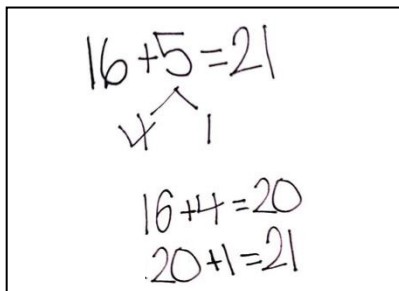 16+5=21
4 1
16+4=20
20+1=21